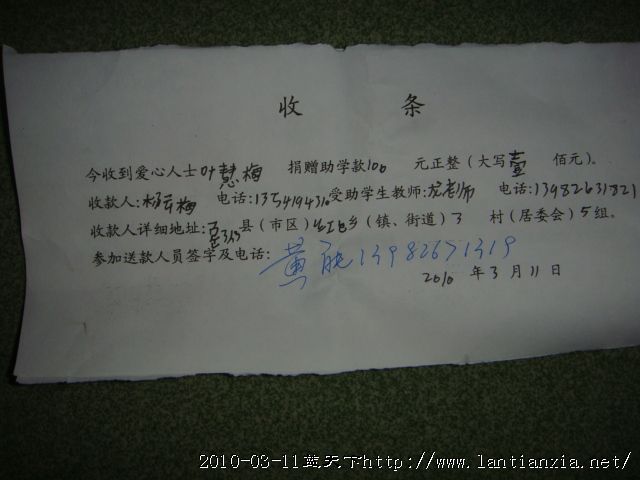 收 条
今收到爱心人士叶慧梅 捐赠助学款100 元正整(大写壹 佰元)。
收款人:杨梅 电话:1354194310受助学生教师:龙老师 电话:13982631821
收款人详细地址:县(市区)乡(镇、街道)3 村(居委会)5组。
参加送款人员签字及电话:黄 13982671319
2010 年3月11日
2010-03-11蓝天下http://www.lantianxia.net/